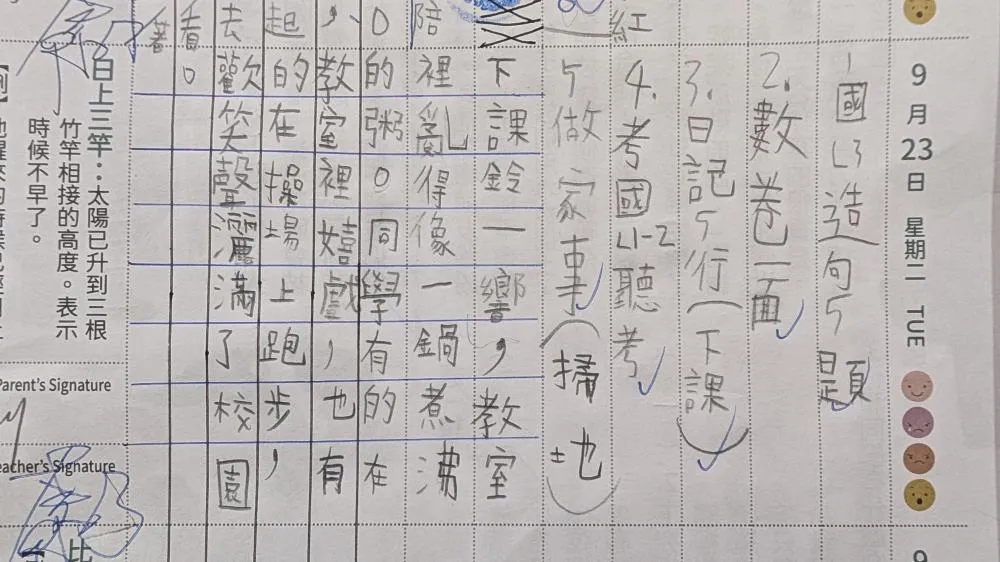 9月23日 星期二 TUE
1國L3造句5題
2.數卷一面
3.日記5行(下課)
紅
4.考國L1-2聽考
5做家事(掃地)
下課鈴一響，教室
陪
裡亂得像一鍋煮沸
。
的粥。同學有的在
，
教室裡嬉戲，也有
起
的在操場上跑步，
去
歡笑聲灑滿了校園
看。
著
日上三竿：太陽已升到三根
竹竿相接的高度。表示
時候不早了。
Parent's Signature
eacher's Signature
9
比